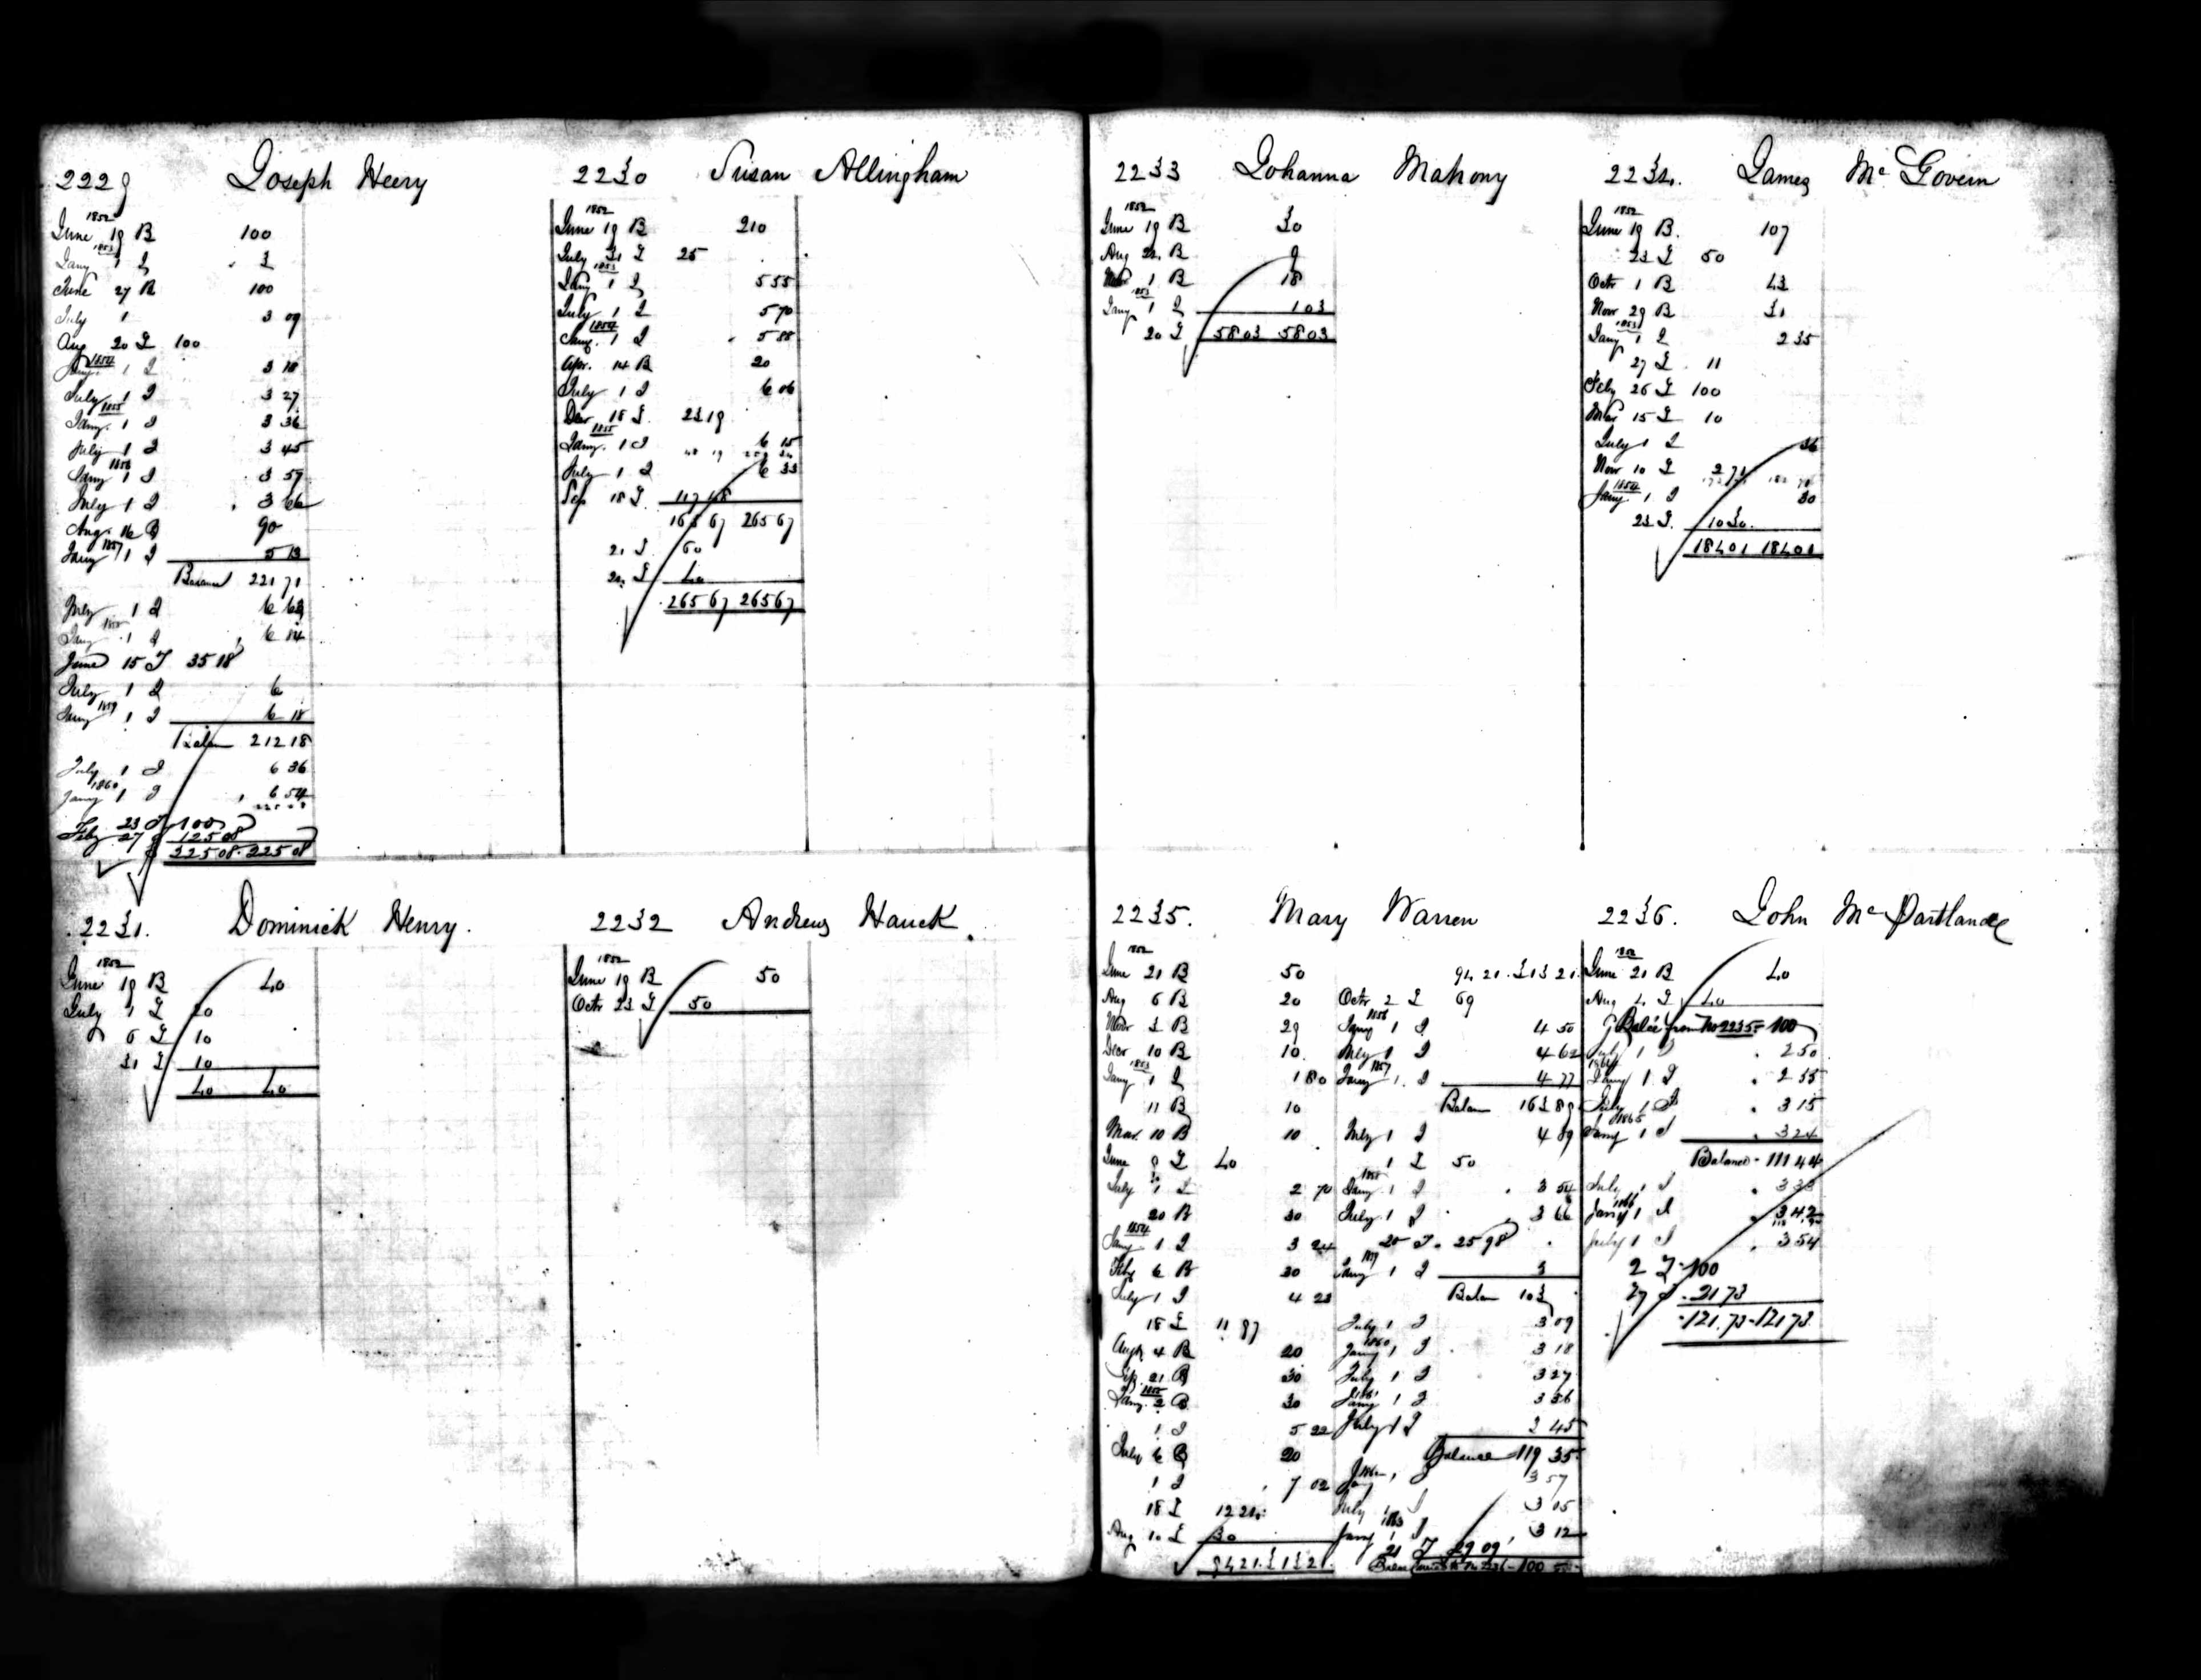 2229 Joseph Heery
1852
June 19 B 100
1853
Jany 1 I 3
June 27 B 100
July 1 3 09
Aug 20 T 100
1854
Jany 1 I 3 18
July 1 I 3 27
1855
Jany. 1 I 3 36
July 1 I 3 45
1856
Jany 1 I 3 57
July 1 I 3 66
Aug. 16 B 90
1857
Jany 1 I 5 13
Balance 221 71
July 1 I 6 63
1858
Jany 1 I 6 84
June 15 T 35 18
July 1 I 6
1859
Jany 1 I 6 18
Balan 212 18
July 1 I 6 36
1860
Jany 1 I 6 54
Feby 23 T 100
27 125 08
225 08 225 08
2230 Susan Allingham
1852
June 19 B 210
July 31 T 25
1853
Jany 1 I 5 55
July 1 I 5 70
1854
Jany. 1 I 5 88
Apr. 14 B 20
July 1 I 6 06
Decr 18 T 23 19
1855
Jany. 1 I 6 15
July 1 I 6 33
Sep 18 T 117 48
165 67 265 67
21 T 60
24 T 40
265 67 265 67
2231. Dominick Henry.
1852
June 19 B 40
July 1 T 20
6 T 10
31 T 10
40 40
2232 Andrew Hauck
1852
June 19 B 50
Octr 23 T 50
2233 Johanna Mahony
1852
June 19 B 30
Aug 24 B 9
Novr 1 B 18
1853
Jany 1 I 1 03
20 T 58 03 58 03
2234. James McGovern
1852
June 19 B. 107
23 T 50
Octr 1 B 43
Novr 29 B 31
1853
Jany 1 I 2 35
27 T 11
Feby 26 T 100
Mar 15 T 10
July 1 I 36
Novr 10 T 2 71
1854
Jany 1 I 30
23 T. 10 30
184 01 184 01
2235. Mary Warren
1852
June 21 B 50
Aug 6 B 20
Novr 3 B 29
Decr 10 B 10
1853
Jany 1 I 1 80
11 B 10
Mar. 10 B 10
June 9 T 40
July 1 I 2 70
20 B 30
1854
Jany 1 I 3 24
Feby 6 B 30
July 1 I 4 23
18 T 11 97
Augt 4 B 20
Sep. 21 B 30
1855
Jany. 2 B 30
1 I 5 22
July 6 B 20
1 I 7 02
18 T 12 24
Aug 10 T 30
94 21 313 21
94 21 313 21
Octr 2 T 69
1856
Jany 1 I 4 50
July 1 I 4 62
1857
Jany 1 I 4 77
Balan 163 89
July 1 I 4 89
1 T 50
1858
Jany. 1 I 3 54
July. 1 I 3 66
20 T. 25 98
1859
Jany 1 I 3
Balan 103
July 1 I 3 09
1860
Jany 1 I 3 18
July 1 I 3 27
1861
Jany 1 I 3 36
July 1 I 3 45
Balance 119 35
1862
Jany 1 I 3 57
July 1 I 3 05
1863
Jany 1 I 3 12
21 T 29 09
Balce to No 2236 100
2236. John McPartland
1852
June 21 B 40
Aug 4 T 40
Balce from No 2235 100
July 1 I 2 50
1864
Jany 1 I 2 55
July 1 I 3 15
1865
Jany 1 I 3 24
Balance 111 44
July 1 I 3 33
1866
Jany 1 I 3 42
July 1 I 3 54
2 T 100
27 T 21 73
121.73 121 73